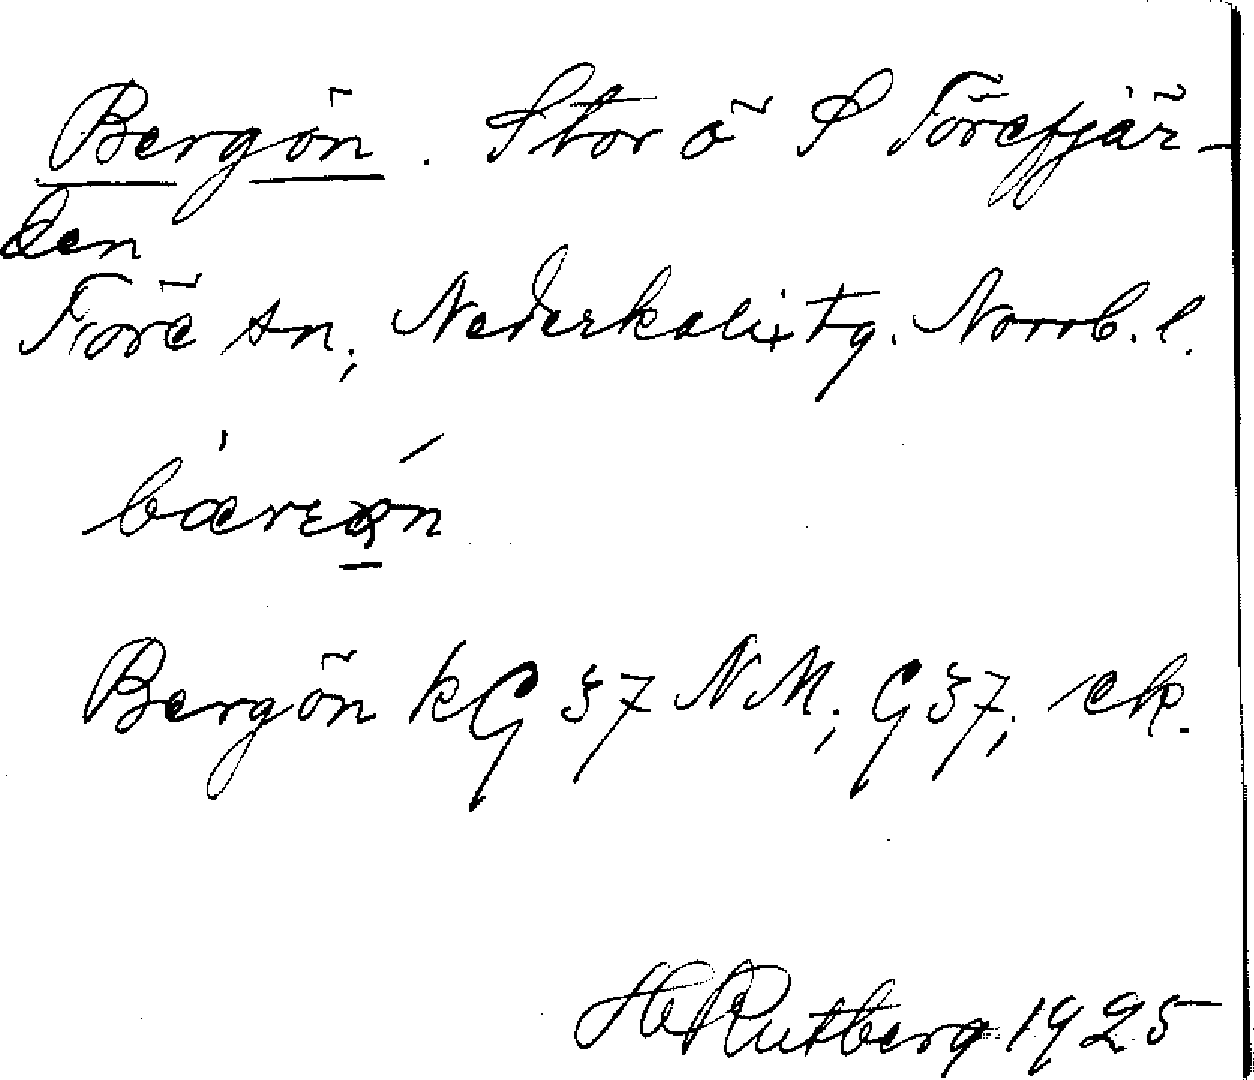 Bergön. Stor ö S Törefjär-
den
Töre sn, Nederkalix tg. Norrb. l.
Bergön kG 37 NM; G37; ek.
H Rutberg 1925